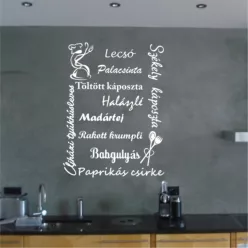 Lecsó
Palacsinta
Töltött káposzta
Halászlé
Madártej
Rakott krumpli
Babgulyás
Paprikás csirke
Székely káposzta
Újházi tyúkhúsleves